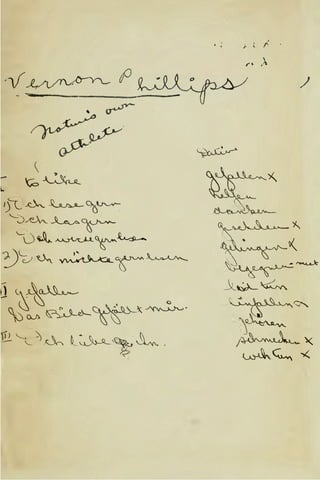 Vernon Phillips
Nature's own
athlete
I to like
1) Ich lese gern
Ich las gern
Ich werde gern lesen
2) Ich möchte gern lesen
II gefallen
Das Bild gefällt mir.
III Ich liebe ihn.
Dative
gefallen X
helfen
danken
geschehen X
gelingen X
begegnen meet
leid tun
einfallen X
gehören
schmecken X
weh tun X